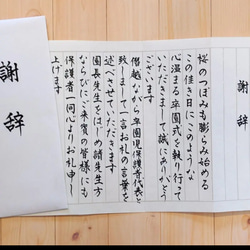 謝辞
謝辞
桜のつぼみも膨らみ始める
この佳き日に このような
心温まる卒園式を執り行って
いただきまして誠にありがとう
ございます
僭越ながら卒園児保護者代表と
致しまして一言お礼の言葉を
述べさせていただきます
園長先生をはじめ諸先生方
ならびにご来賓の皆様にも
保護者一同心よりお礼申し
上げます